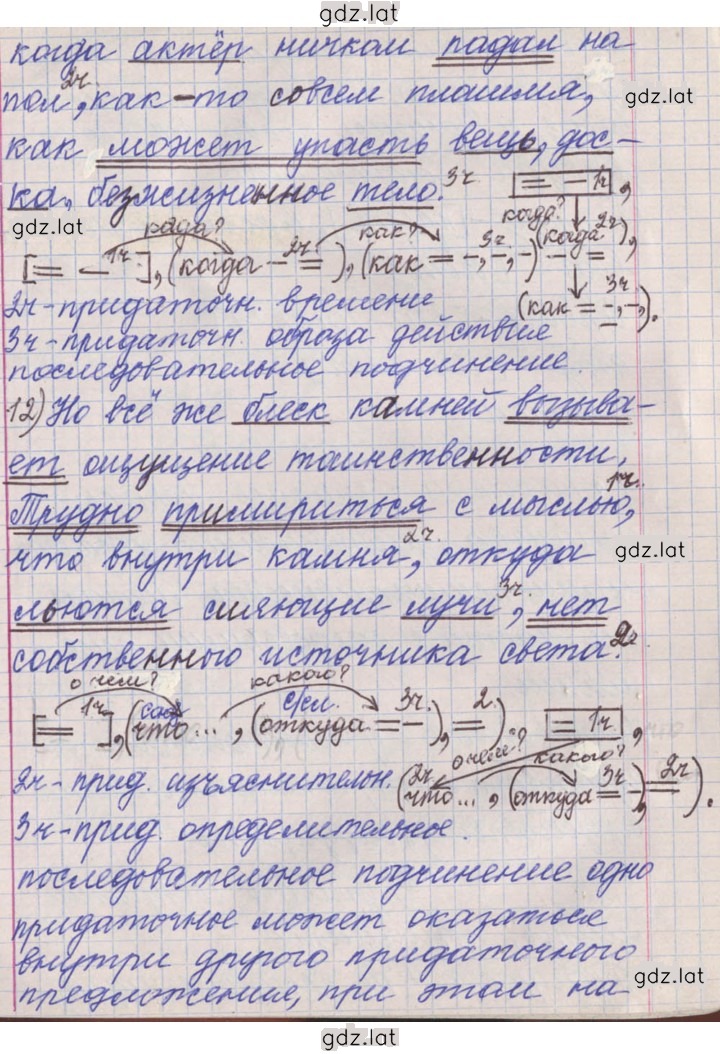 gdz.lat
когда актёр ничком падал на
gdz.lat
2ч.
пол, как-то совсем плашмя,
как может упасть вещь, дос-
ка, безжизненное тело. 3ч. [= – 1ч],
gdz.lat
когда? как? когда?
[= – 1ч], (когда – = 2ч), (как = –, –, – 3ч) (когда – = 2ч),
2ч - придаточн. времени (как = –, –, – 3ч).
3ч - придаточн. образа действия
последовательное подчинение
12) Но всё же блеск камней вызыва-
ет ощущение таинственности.
1ч.
Трудно примириться с мыслью,
что внутри камня 2ч., откуда
gdz.lat
льются сияющие лучи 3ч., нет
собственного источника света. 2ч
о чём? какого?
союз с/сл.
[= 1ч], (что..., (откуда = – 3ч.), = 2.). [= 1ч],
о чём? какого?
2ч - прид. изъяснительн. (2ч что..., (откуда = – 3ч), = 2ч).
3ч - прид. определительное.
последовательное подчинение одно
придаточное может оказаться
внутри другого придаточного
gdz.lat
предложения, при этом на
gdz.lat